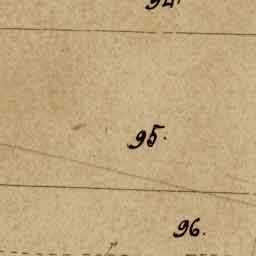 94.
95.
96.